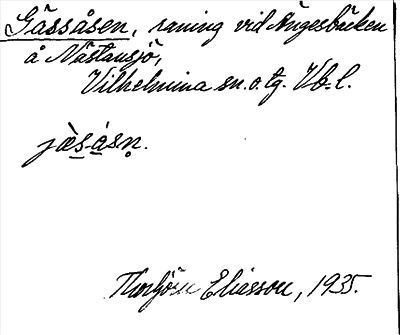 Gässåsen, raning vid Ängesbäcken
å Nästansjö,
Vilhelmina sn. o. tg. Vb. l.
jæ̀sȧsn̥.
Thorbjörn Eliasson, 1935.